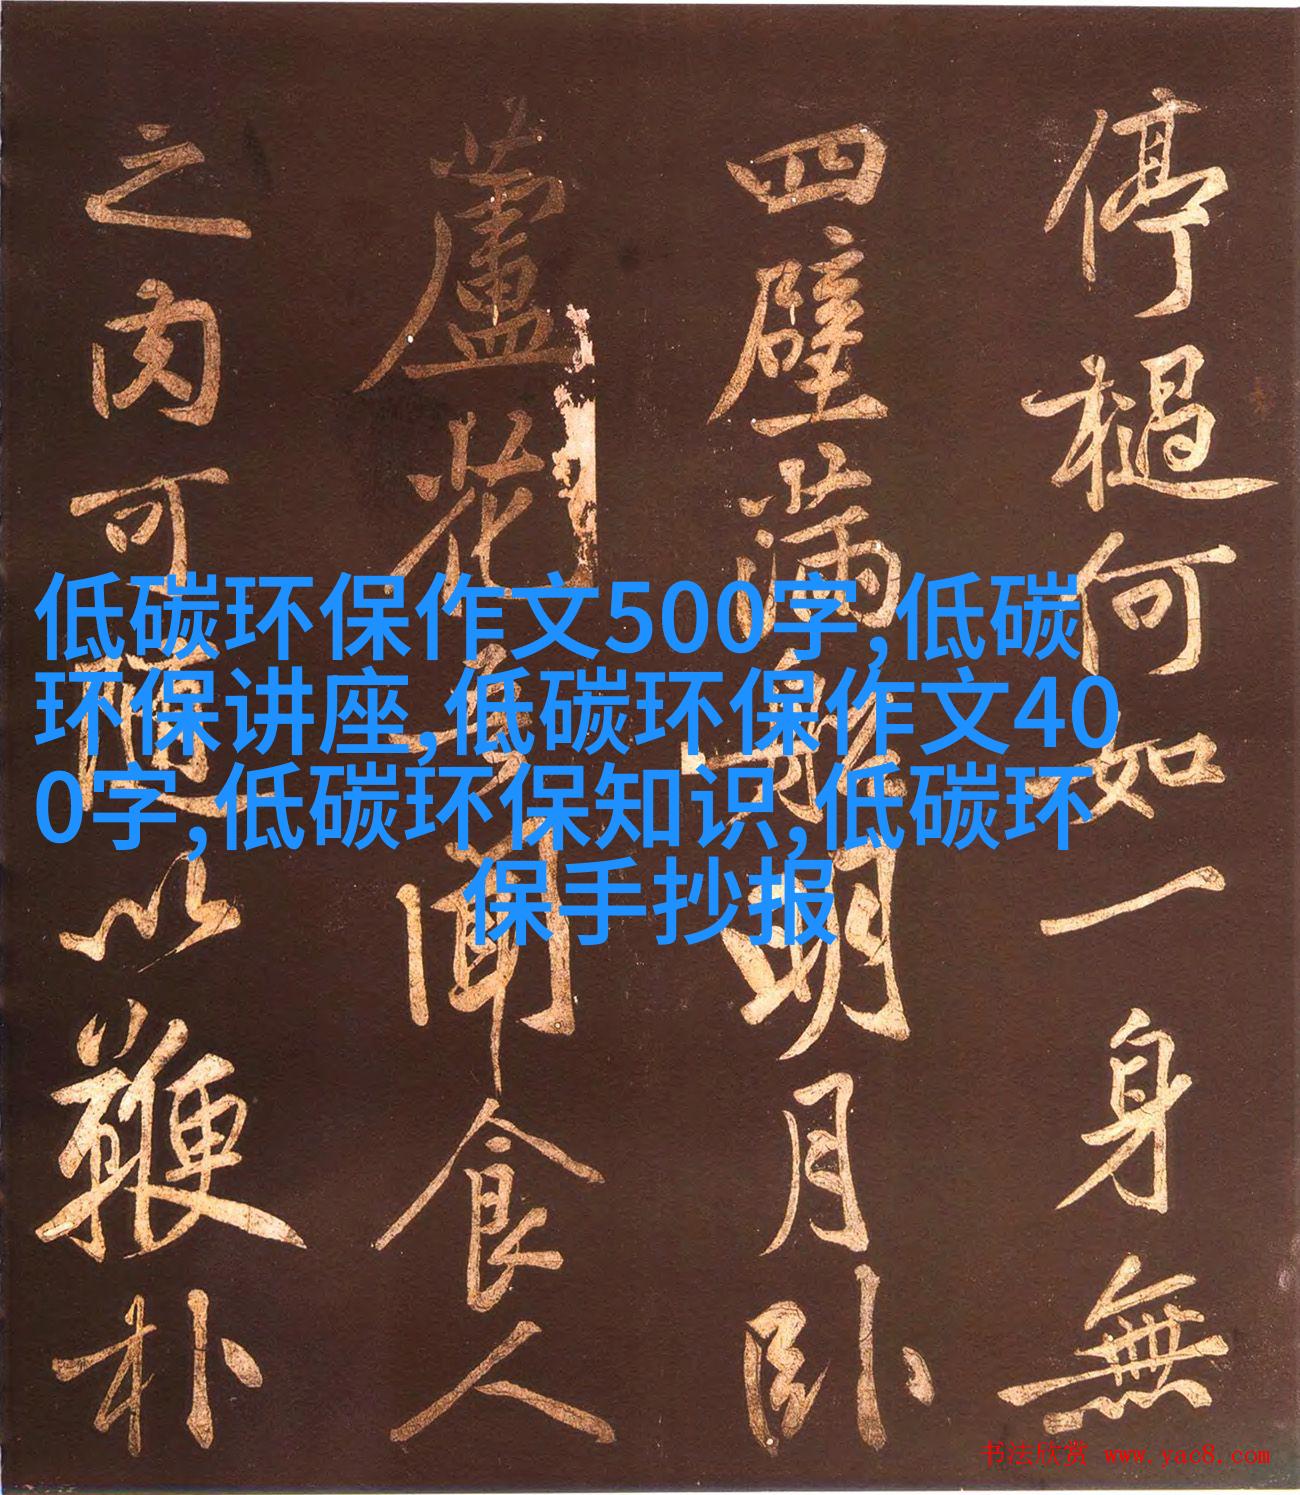 停檛何如一身無
四壁滿船明月卧
蘆花吾聞食人
之肉可隨以鞭朴
低碳环保作文500字,低碳
环保讲座,低碳环保作文40
0字,低碳环保知识,低碳环
保手抄报
书法欣赏 www.yac8.com